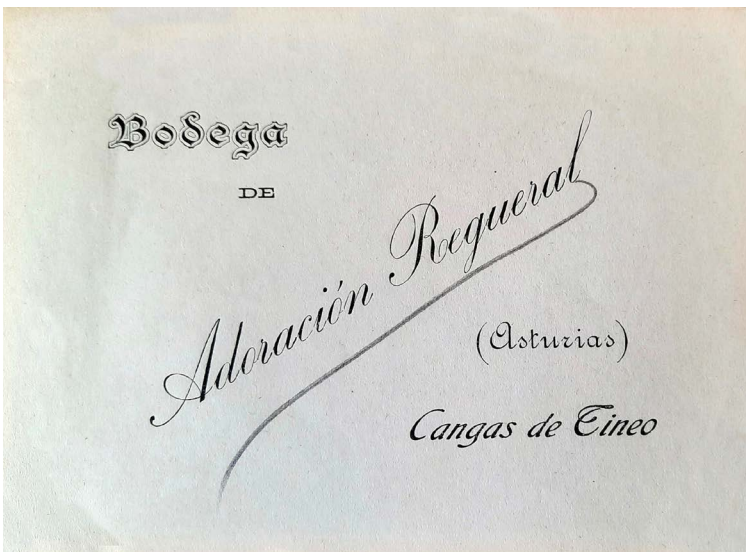 Bodega
DE
Adoración Regueral
(Asturias)
Cangas de Tineo